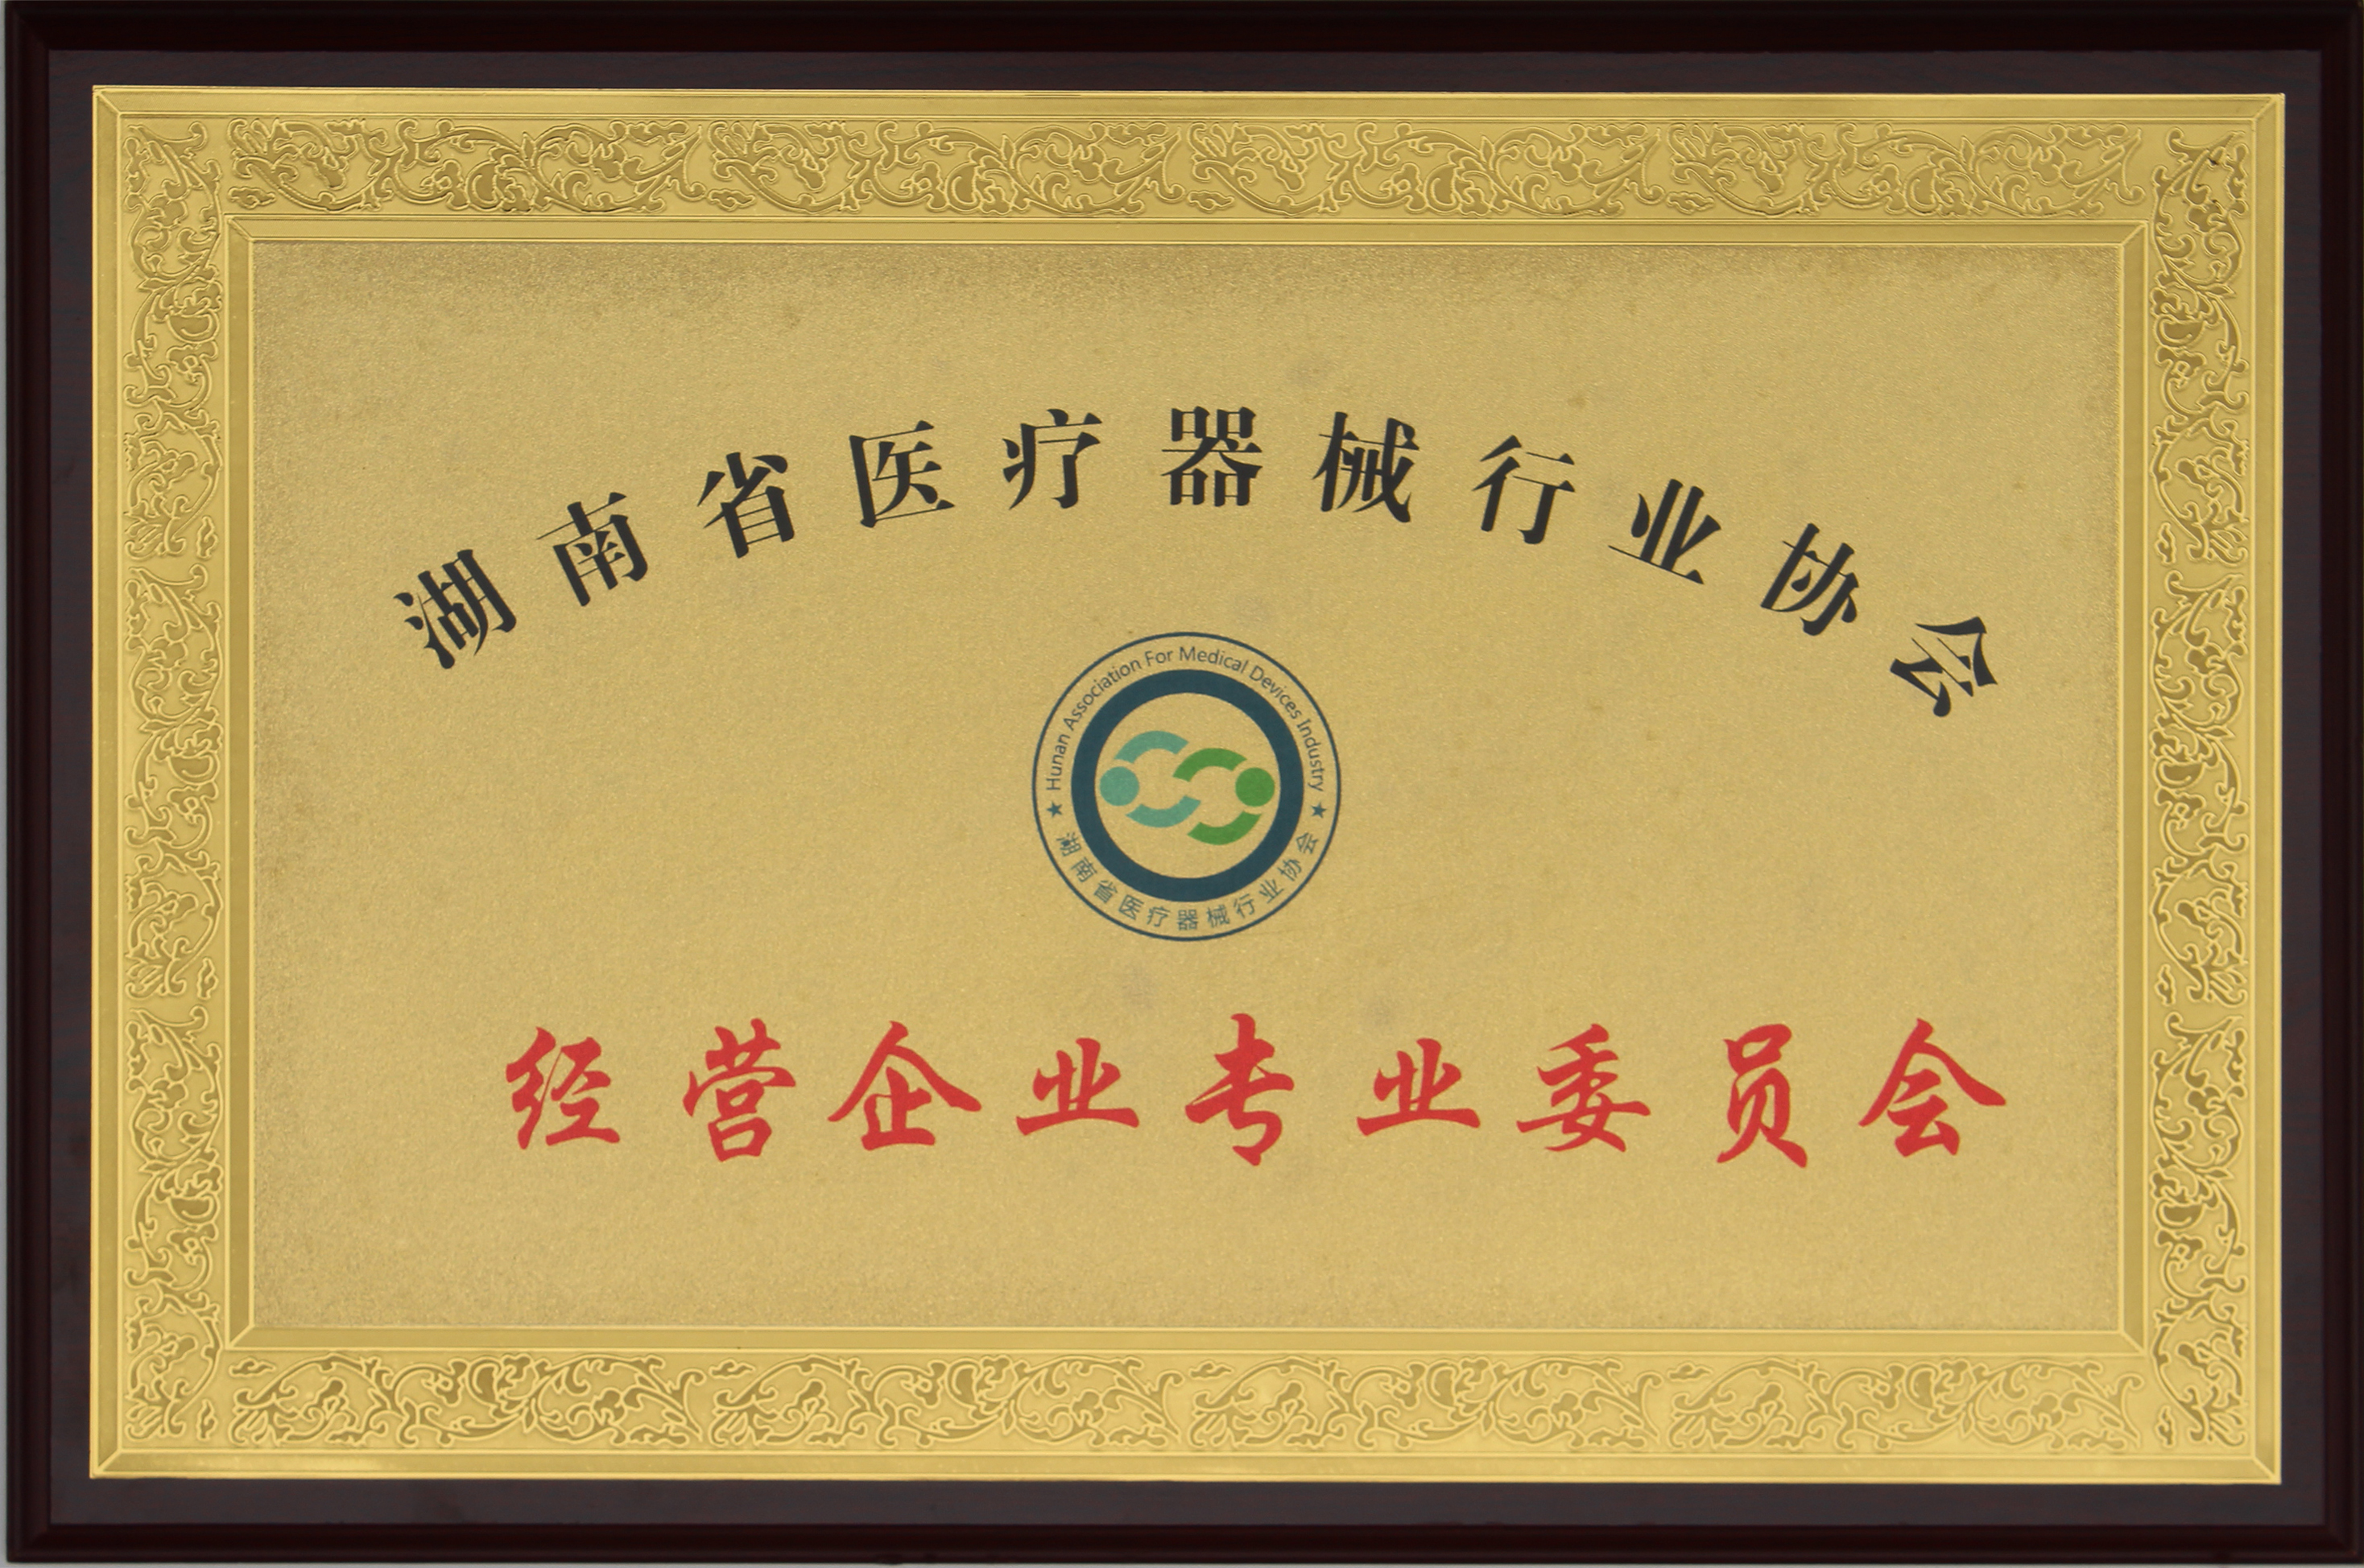 湖南省医疗器械行业协会
★ Hunan Association For Medical Devices Industry ★
湖南省医疗器械行业协会
经营企业专业委员会